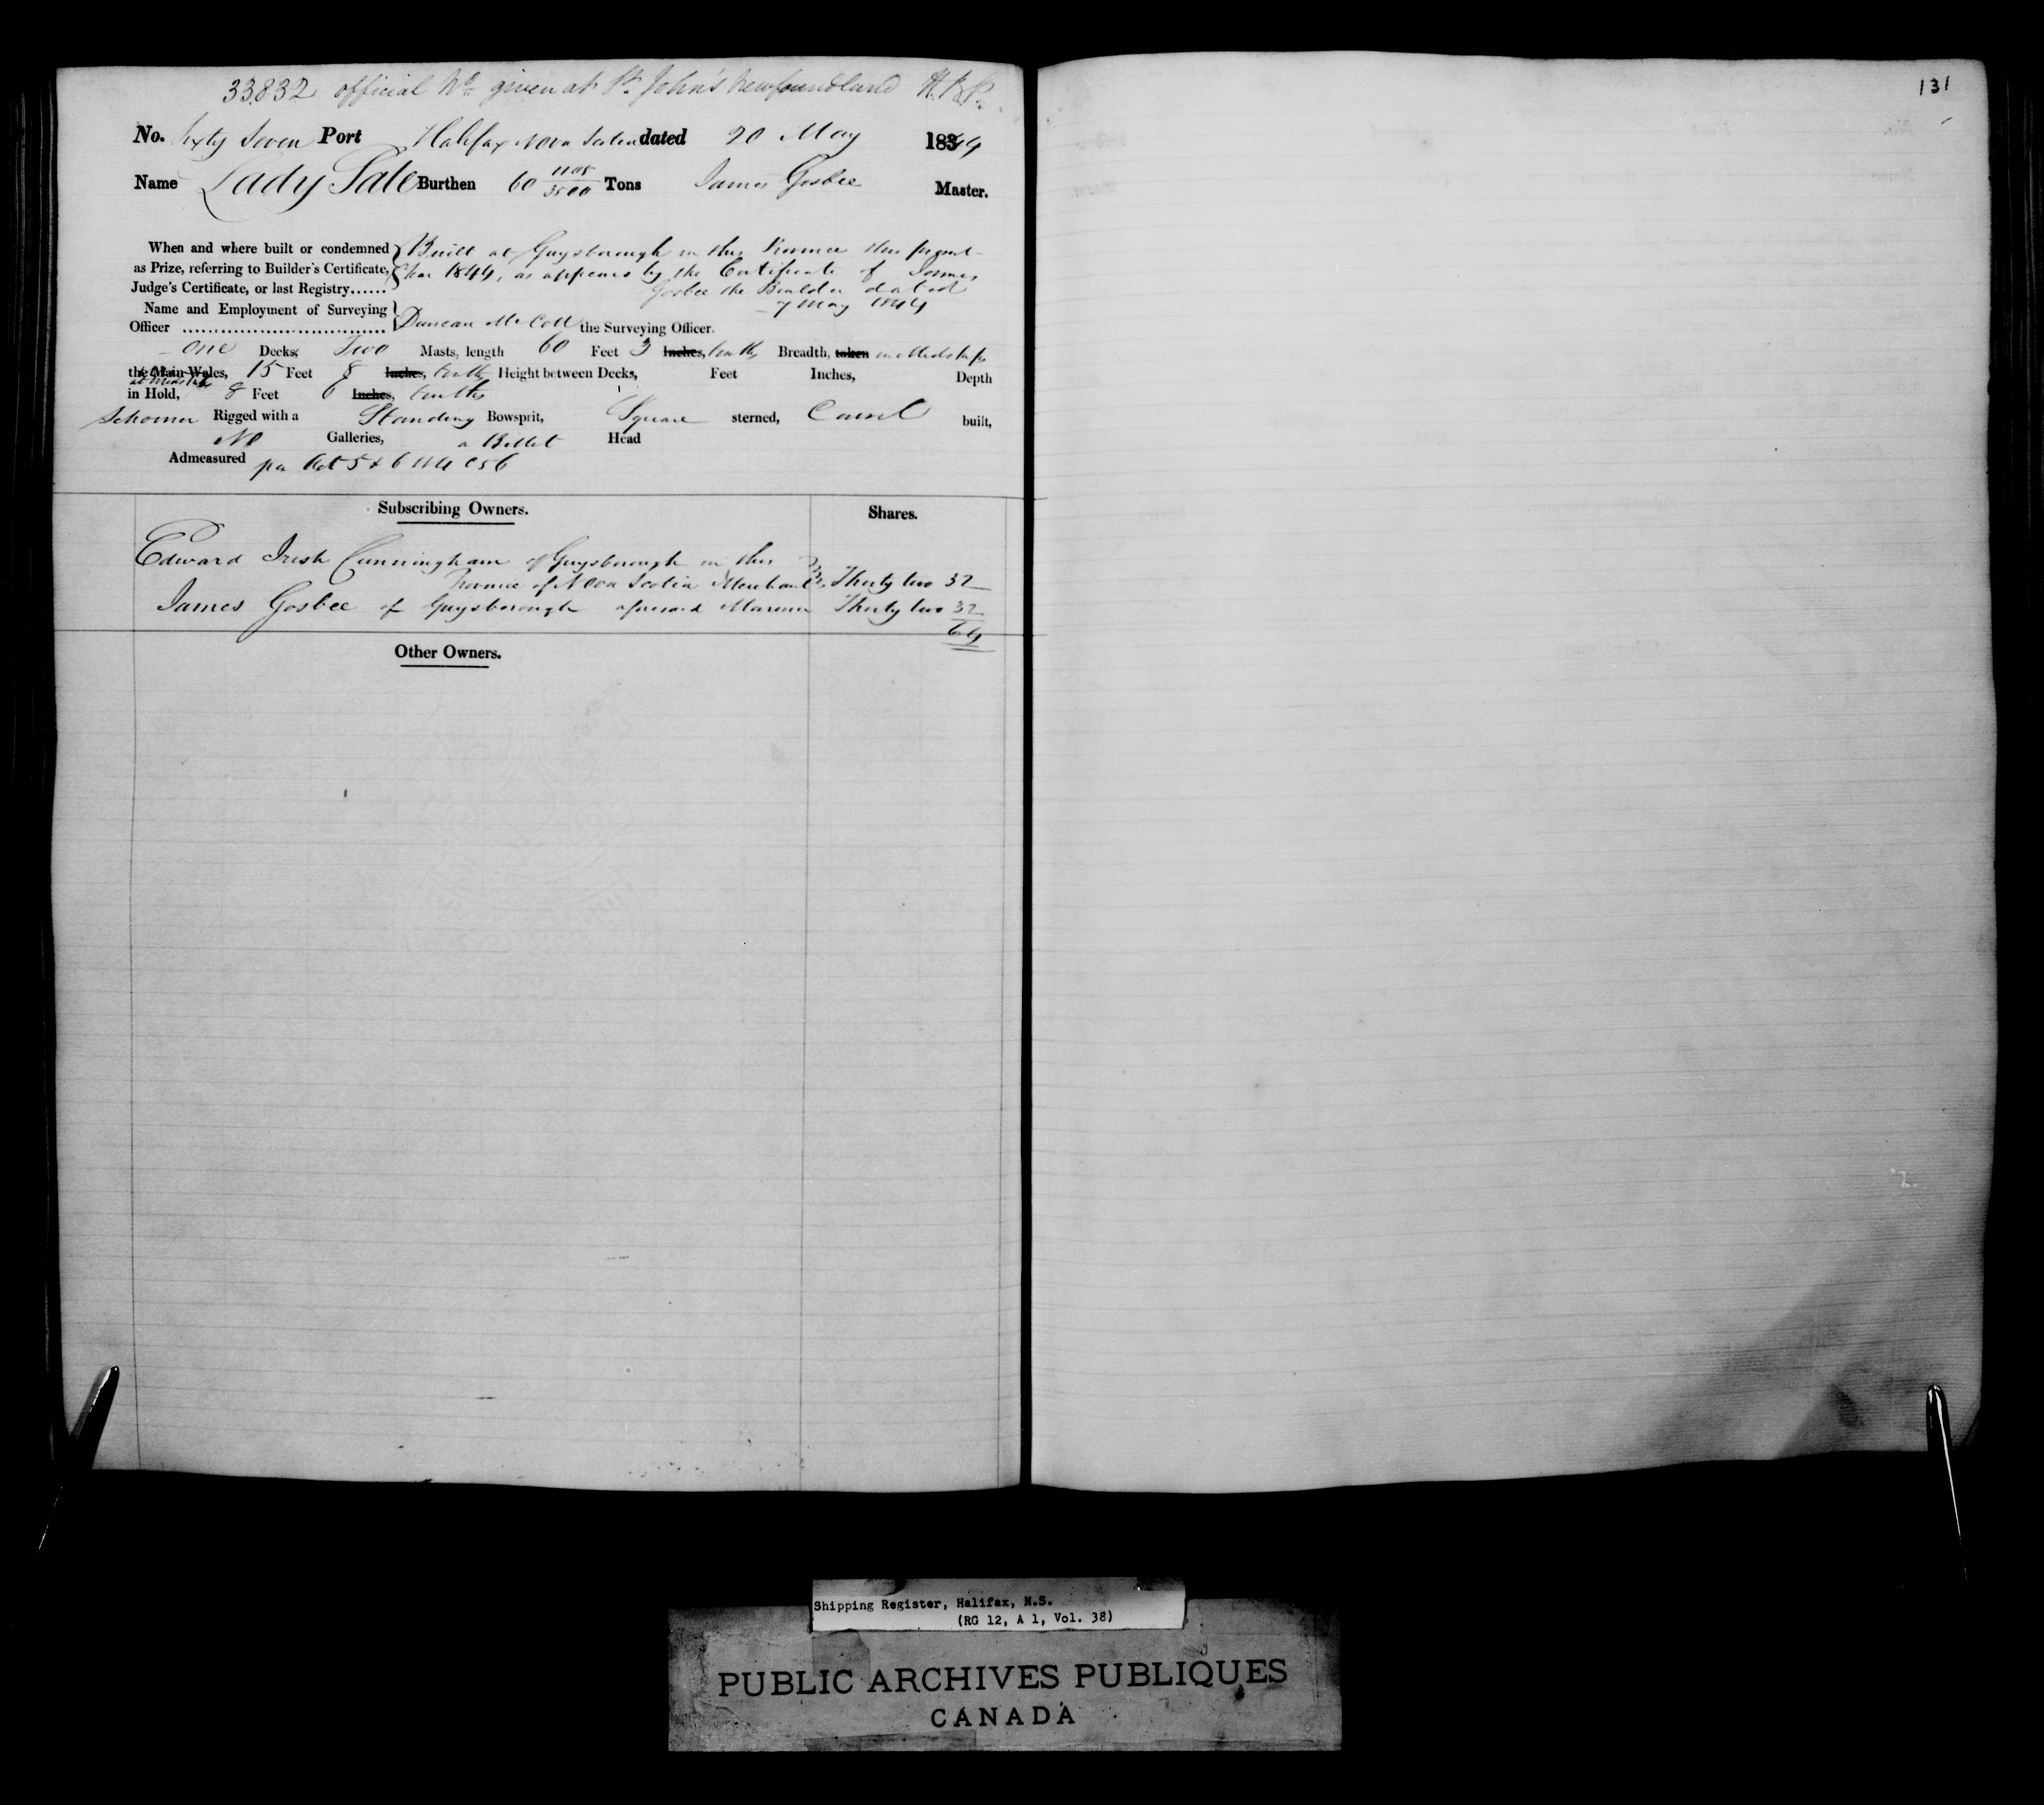 33.832 official No given at St. John's Newfoundland H.B.P.
131
No. Sixty Seven Port Halifax Nova Scotia dated 20 May 1844
Name Lady Sale Burthen 60 1105/3500 Tons James Gosbee Master.
When and where built or condemned as Prize, referring to Builder's Certificate, Judge's Certificate, or last Registry......
Built at Guysborough in this Province this present
Year 1844, as appears by the Certificate of James
Gosbee the Builder dated
7 May 1844
Name and Employment of Surveying Officer ................................ Duncan Mc Coll the Surveying Officer.
one Decks, Two Masts, length 60 Feet 3 Inches, tenths Breadth, taken in Midships
the Main Wales, 15 Feet 8 Inches, tenths Height between Decks, Feet Inches, Depth
at Midships
in Hold, 8 Feet 6 Inches, tenths
Schooner Rigged with a Standing Bowsprit, Square sterned, Carvel built,
No Galleries, a Billet Head
Admeasured per Act 5 & 6 W4 C56
Subscribing Owners. Shares.
Edward Irish Cunningham of Guysborough in this
Province of Nova Scotia Merchant Thirty two 32
James Gosbee of Guysborough aforesaid Mariner Thirty two 32
64
Other Owners.
Shipping Register, Halifax, N.S.
(RG 12, A 1, Vol. 38)
PUBLIC ARCHIVES PUBLIQUES
CANADA